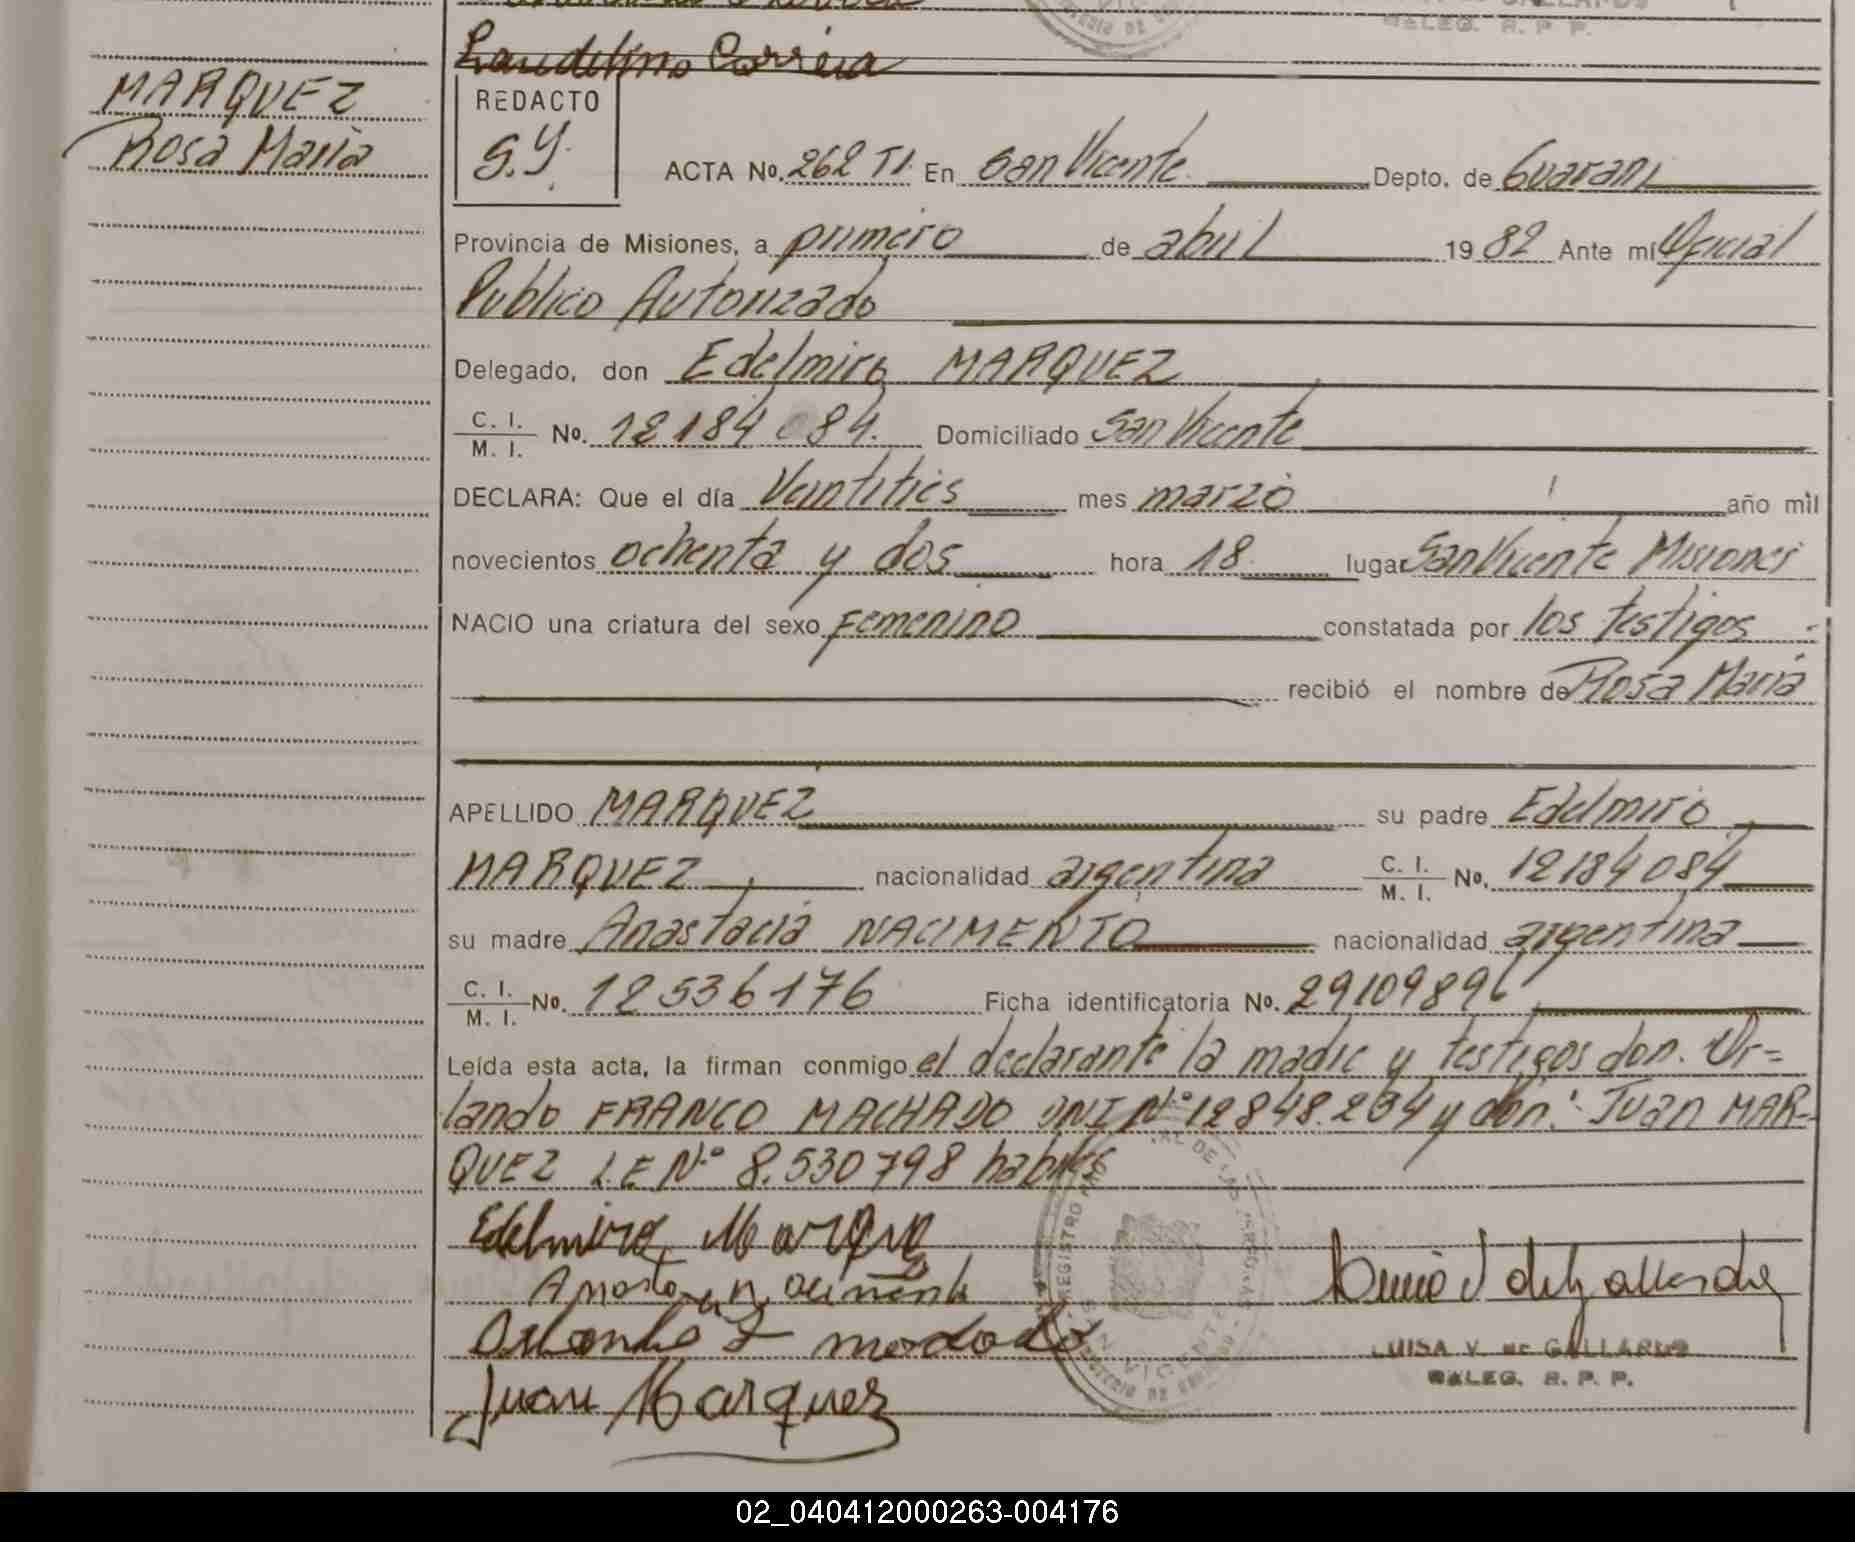 Laudelino Correia
MARQUEZ
Rosa Maria
REDACTO
S.Y.
ACTA No. 262 TI. En San Vicente. Depto. de Guarani
Provincia de Misiones, a primero de abril 1982 Ante mí Oficial
Publico Autorizado
Delegado, don Edelmiro MARQUEZ
C. I. / M. I. No. 12184084. Domiciliado San Vicente
DECLARA: Que el día Veintitres mes marzo año mil
novecientos ochenta y dos hora 18 lugar San Vicente Misiones
NACIO una criatura del sexo Femenino constatada por los testigos
recibió el nombre de Rosa Maria
APELLIDO MARQUEZ su padre Edelmiro
MARQUEZ nacionalidad argentina C. I. / M. I. No. 12184084
su madre Anastacia NACIMENTO nacionalidad argentina
C. I. / M. I. No. 12536176 Ficha identificatoria No. 29109896
Leída esta acta, la firman conmigo el declarante la madre y testigos don. Or=
lando FRANCO MACHADO DNI Nº 12848.234 y don: Juan MAR-
QUEZ L.E Nº 8.530798 habiles
Edelmiro Marquez
Juan Marquez
LUISA V. de GALLARDO
DELEG. R. P. P.
02_040412000263-004176